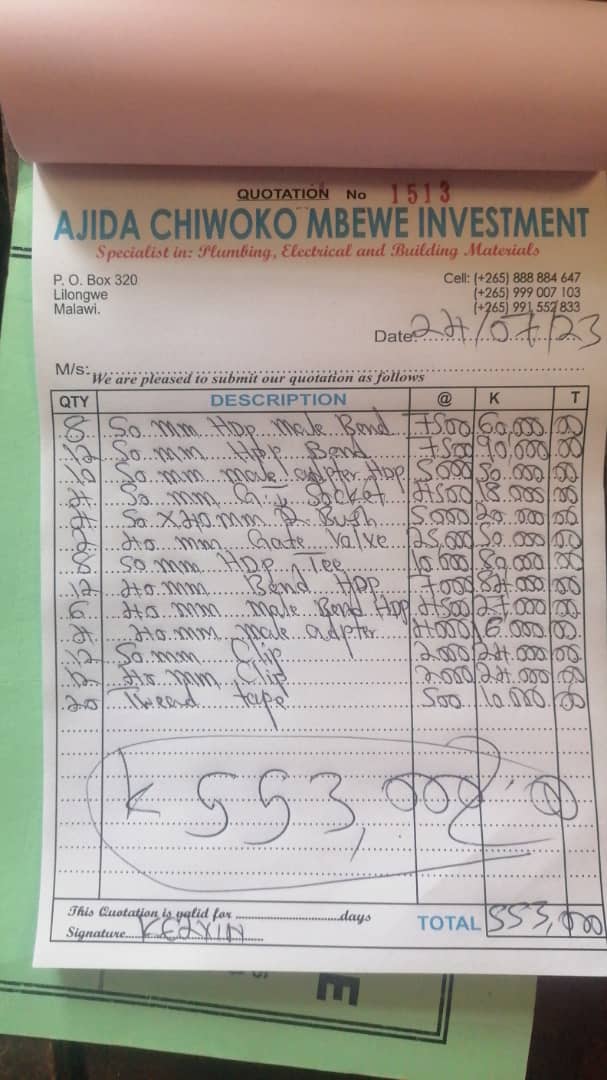 QUOTATION No 1513
AJIDA CHIWOKO MBEWE INVESTMENT
Specialist in: Plumbing, Electrical and Building Materials
P. O. Box 320
Lilongwe
Malawi.
Cell: (+265) 888 884 647
(+265) 999 007 103
(+265) 991 552 833
Date 24/07/23
M/s:
We are pleased to submit our quotation as follows
QTY DESCRIPTION @ K T
8 50 mm HDP male Bend 7500 60,000 00
12 50 mm HDP Bend 7500 90,000 00
10 50 mm male adpter HDP 5000 50,000 00
4 50 mm G.I Socket 4500 18,000 00
4 50 X 40 mm R Bush 5,000 20,000 00
2 40 mm Gate Valve 25,000 50,000 00
8 50 mm HDP Tee 10,000 80,000 00
12 40 mm Bend HDP 7000 84,000 00
6 40 mm male Bend HDP 4500 27,000 00
4 40 mm male adpter 4000 16,000 00
12 50 mm Clip 2,000 24,000 00
12 40 mm Clip 2000 24,000 00
20 tape 500 10,000 00
K 553,000.00
This Quotation is valid for days
Signature
TOTAL 553,000
E